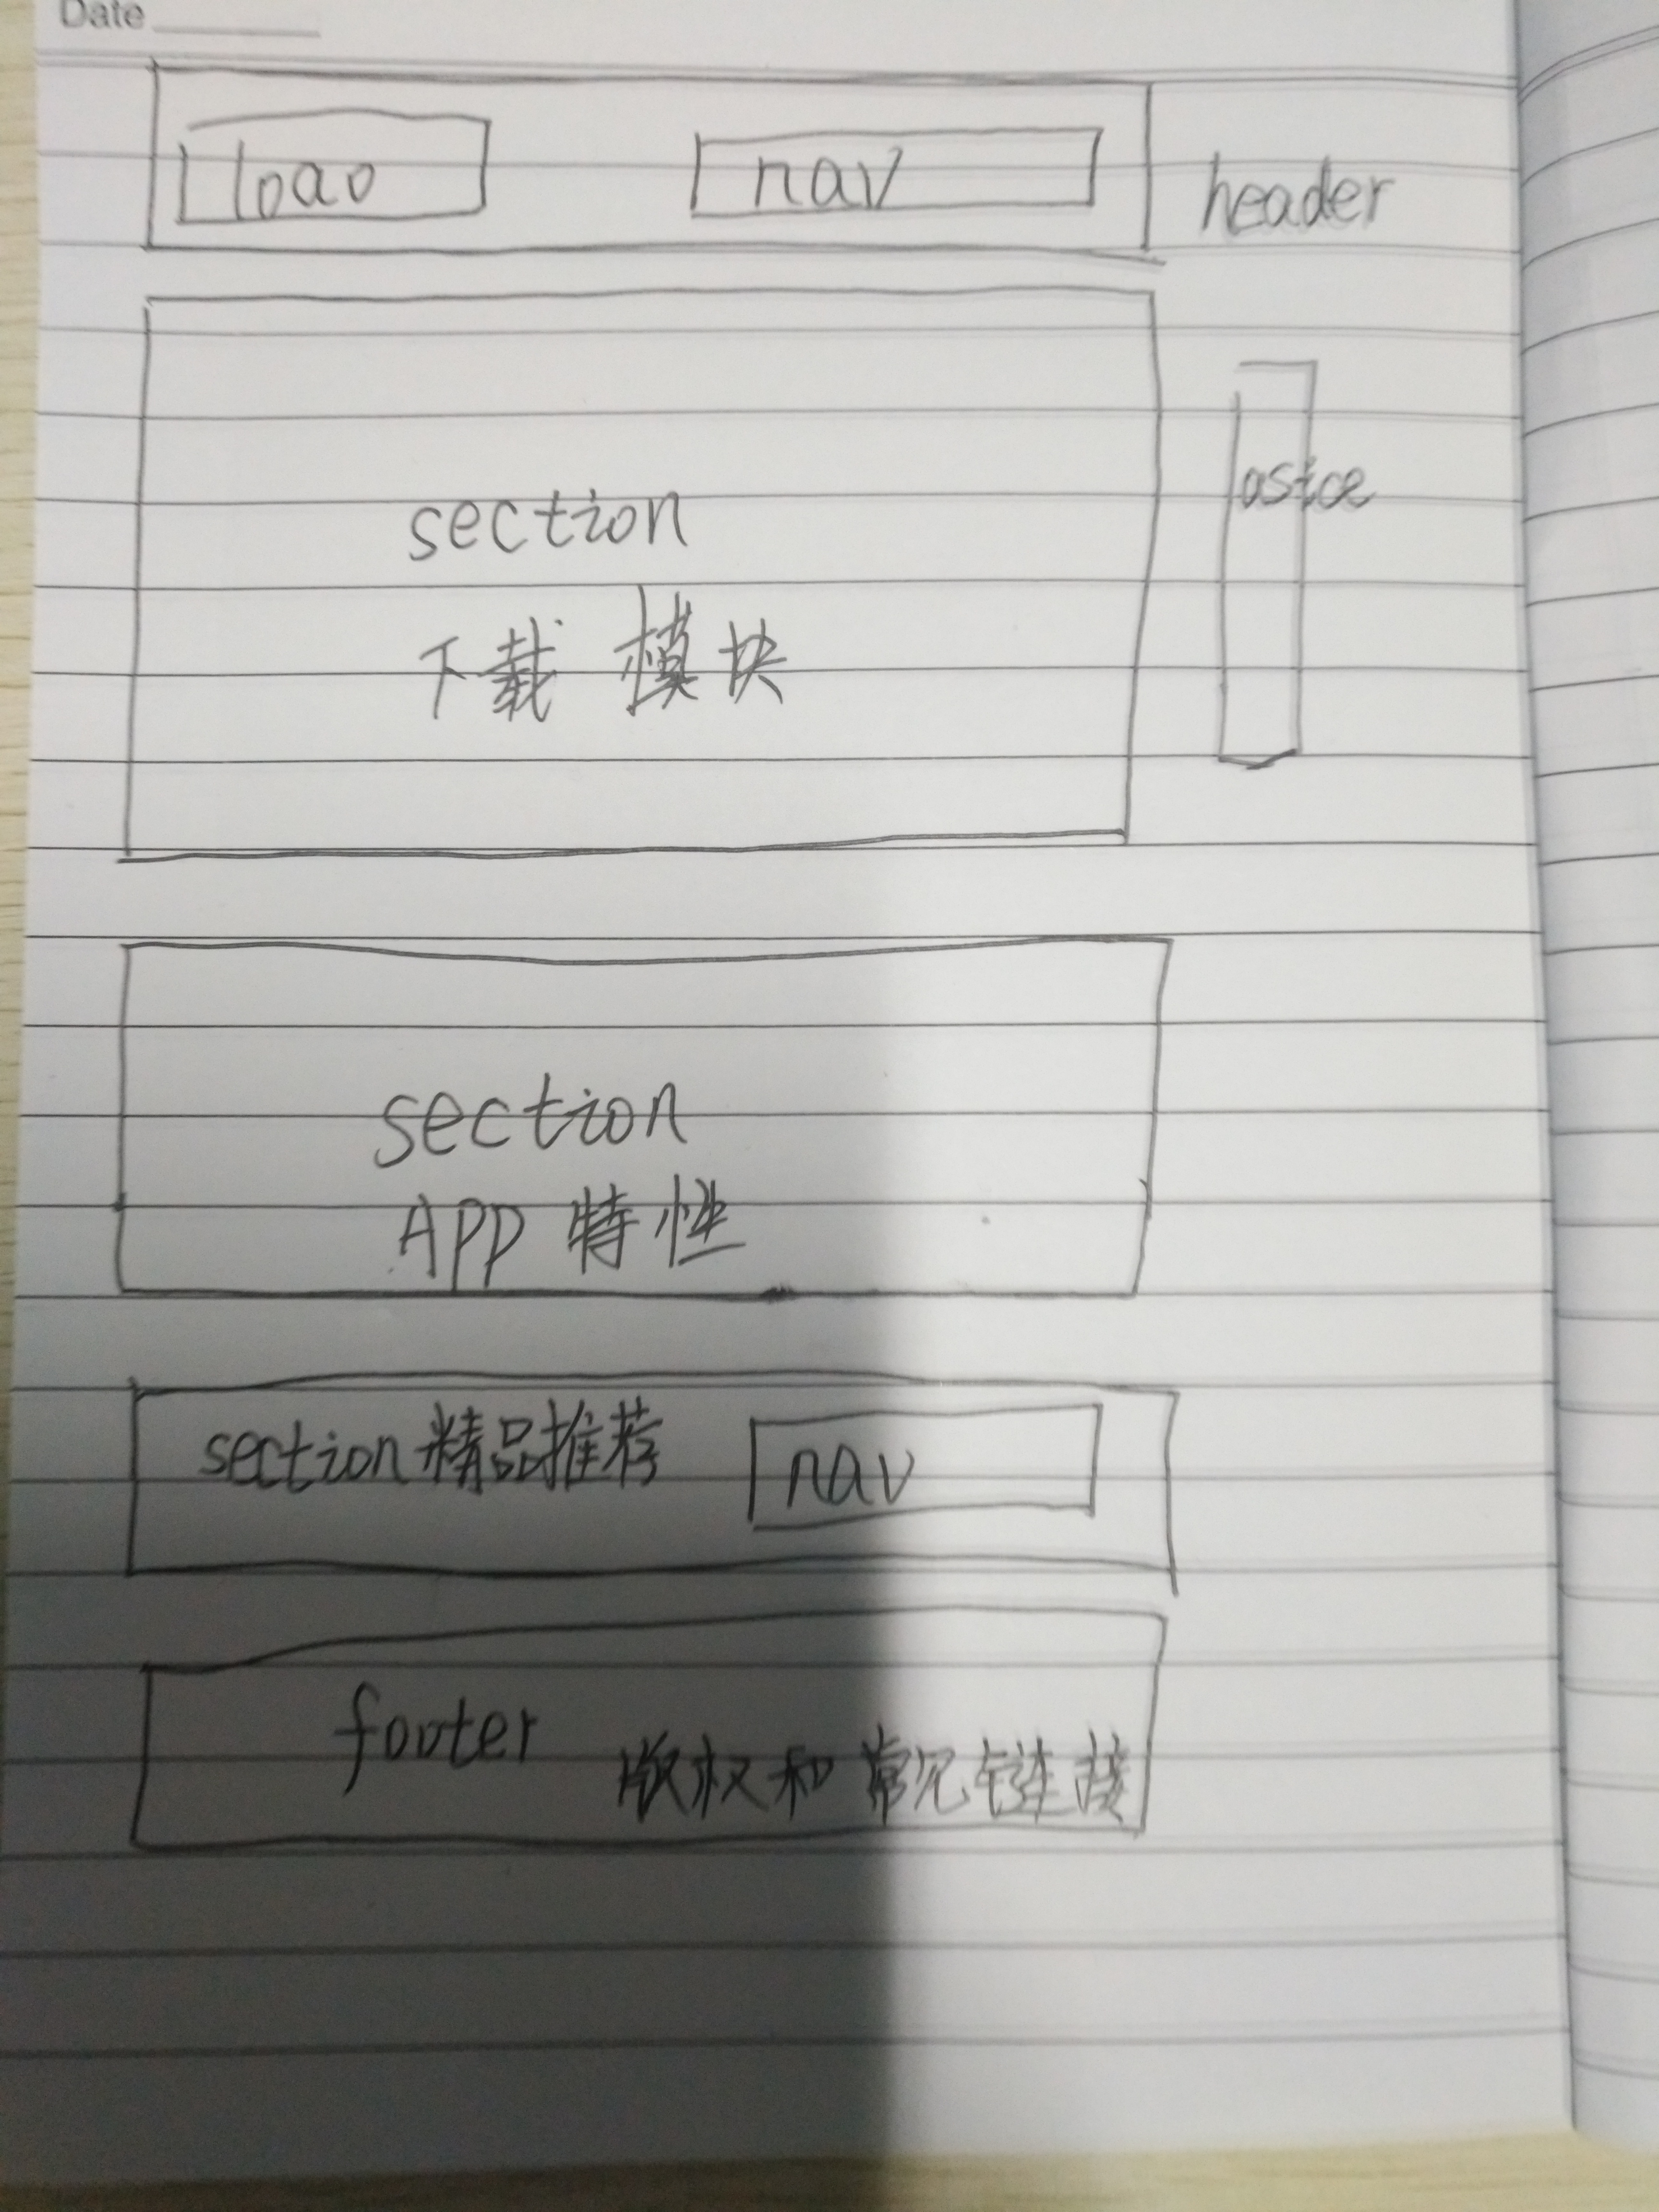 Date
loao
nav
header
section
下载 模块
asice
section
APP 特性
section 精品推荐
nav
footer
版权和常见链接